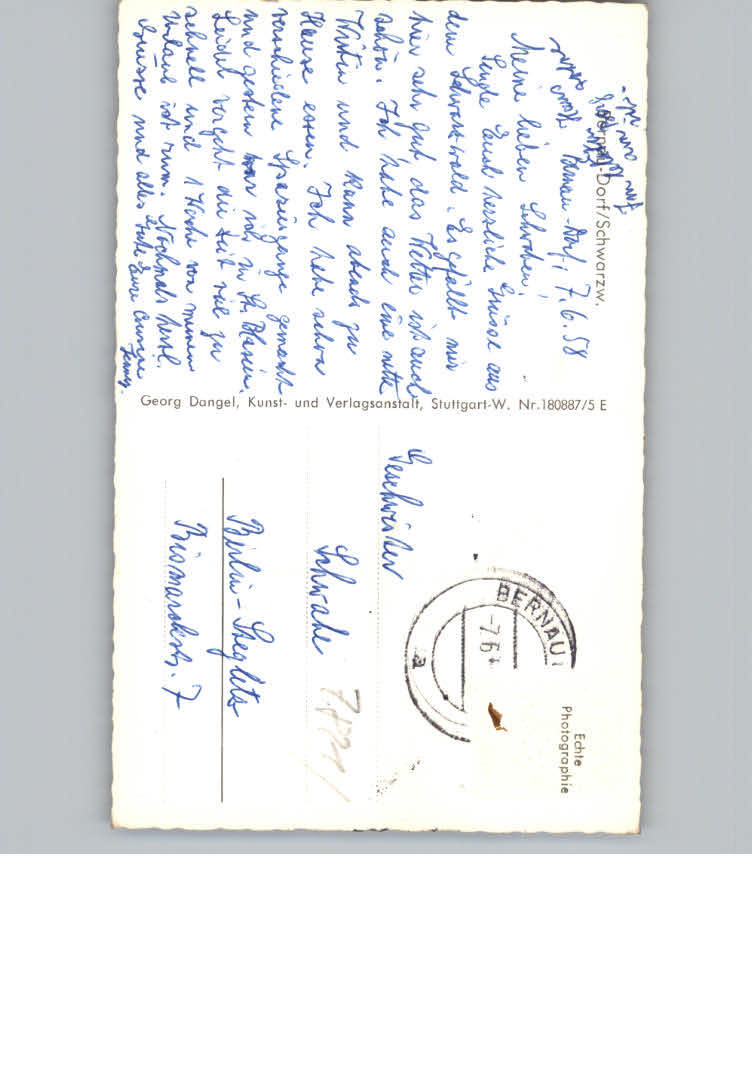 Bernau-Dorf/Schwarzw.
Bernau-Dorf, 7.6.58
Meine lieben Schwaben!
Sende Euch herzliche Grüsse aus
dem Schwarzwald. Es gefällt mir
hier sehr gut das Wetter ist auch
schön. Ich habe auch eine nette
Wirtin und kann abends zu
Hause essen. Ich habe schon
verschiedene Spaziergänge gemacht
und gestern war ich in St. Blasien.
Leider vergeht die Zeit viel zu
schnell und 1 Woche von meinem
Urlaub ist rum. Nochmals herzl.
Grüsse und alles Gute Eure Cousine
Georg Dangel, Kunst- und Verlagsanstalt, Stuttgart-W. Nr. 180887/5 E
BERNAU
-7.6
a
Echte
Photographie
Geschwister
Schwabe
Berlin-Steglitz
Bismarckstr. 7